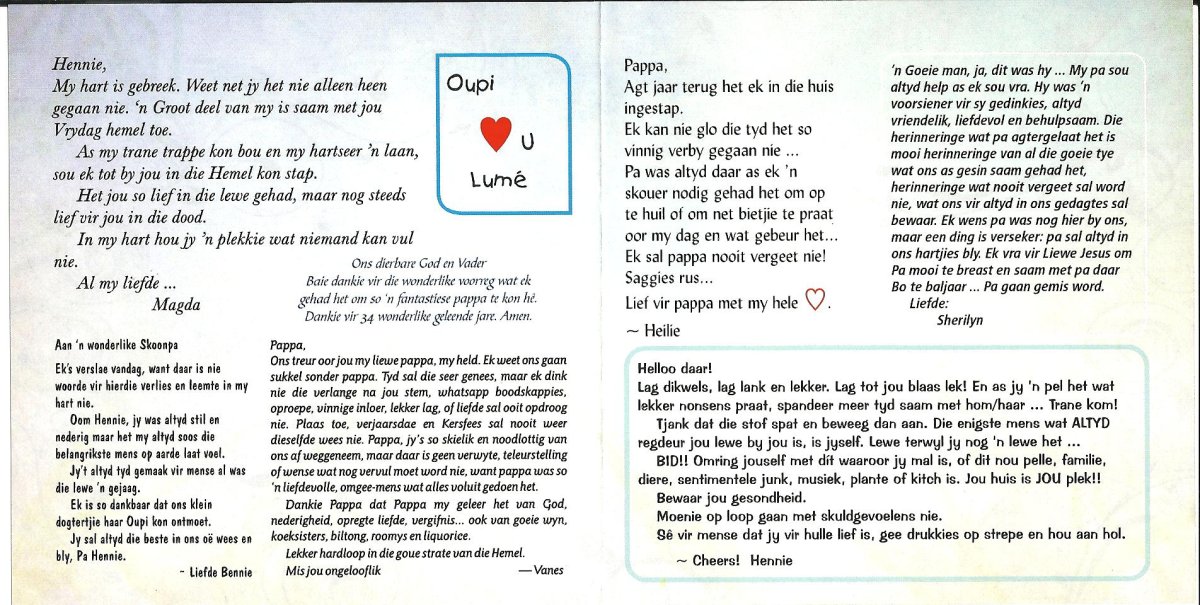 Hennie,
My hart is gebreek. Weet net jy het nie alleen heen
gegaan nie. ‘n Groot deel van my is saam met jou
Vrydag hemel toe.
As my trane trappe kon bou en my hartseer ’n laan,
sou ek tot by jou in die Hemel kon stap.
Het jou so lief in die lewe gehad, maar nog steeds
lief vir jou in die dood.
In my hart hou jy ’n plekkie wat niemand kan vul
nie.
Al my liefde ...
Magda
Oupi
U
Lumé
Ons dierbare God en Vader
Baie dankie vir die wonderlike voorreg wat ek
gehad het om so ’n fantastiese pappa te kon hê.
Dankie vir 34 wonderlike geleende jare. Amen.
Aan ‘n wonderlike Skoonpa
Ek’s verslae vandag, want daar is nie
woorde vir hierdie verlies en leemte in my
hart nie.
Oom Hennie, jy was altyd stil en
nederig maar het my altyd soos die
belangrikste mens op aarde laat voel.
Jy’t altyd tyd gemaak vir mense al was
die lewe ’n gejaag.
Ek is so dankbaar dat ons klein
dogtertjie haar Oupi kon ontmoet.
Jy sal altyd die beste in ons oë wees en
bly, Pa Hennie.
- Liefde Bennie
Pappa,
Ons treur oor jou my liewe pappa, my held. Ek weet ons gaan
sukkel sonder pappa. Tyd sal die seer genees, maar ek dink
nie die verlange na jou stem, whatsapp boodskappies,
oproepe, vinnige inloer, lekker lag, of liefde sal ooit opdroog
nie. Plaas toe, verjaarsdae en Kersfees sal nooit weer
dieselfde wees nie. Pappa, jy’s so skielik en noodlottig van
ons af weggeneem, maar daar is geen verwyte, teleurstelling
of wense wat nog vervul moet word nie, want pappa was so
‘n liefdevolle, omgee-mens wat alles voluit gedoen het.
Dankie Pappa dat Pappa my geleer het van God,
nederigheid, opregte liefde, vergifnis... ook van goeie wyn,
koeksisters, biltong, roomys en liquorice.
Lekker hardloop in die goue strate van die Hemel.
Mis jou ongelooflik — Vanes
Pappa,
Agt jaar terug het ek in die huis
ingestap.
Ek kan nie glo die tyd het so
vinnig verby gegaan nie ...
Pa was altyd daar as ek ’n
skouer nodig gehad het om op
te huil of om net bietjie te praat
oor my dag en wat gebeur het...
Ek sal pappa nooit vergeet nie!
Saggies rus...
Lief vir pappa met my hele ♡.
~ Heilie
‘n Goeie man, ja, dit was hy ... My pa sou
altyd help as ek sou vra. Hy was ’n
voorsiener vir sy gedinkies, altyd
vriendelik, liefdevol en behulpsaam. Die
herinneringe wat pa agtergelaat het is
mooi herinneringe van al die goeie tye
wat ons as gesin saam gehad het,
herinneringe wat nooit vergeet sal word
nie, wat ons vir altyd in ons gedagtes sal
bewaar. Ek wens pa was nog hier by ons,
maar een ding is verseker: pa sal altyd in
ons hartjies bly. Ek vra vir Liewe Jesus om
Pa mooi te breast en saam met pa daar
Bo te baljaar ... Pa gaan gemis word.
Liefde:
Sherilyn
Helloo daar!
Lag dikwels, lag lank en lekker. Lag tot jou blaas lek! En as jy ’n pel het wat
lekker nonsens praat, spandeer meer tyd saam met hom/haar ... Trane kom!
Tjank dat die stof spat en beweeg dan aan. Die enigste mens wat ALTYD
regdeur jou lewe by jou is, is jyself. Lewe terwyl jy nog ’n lewe het ...
BID!! Omring jouself met dít waaroor jy mal is, of dit nou pelle, familie,
diere, sentimentele junk, musiek, plante of kitch is. Jou huis is JOU plek!!
Bewaar jou gesondheid.
Moenie op loop gaan met skuldgevoelens nie.
Sê vir mense dat jy vir hulle lief is, gee drukkies op strepe en hou aan hol.
~ Cheers! Hennie